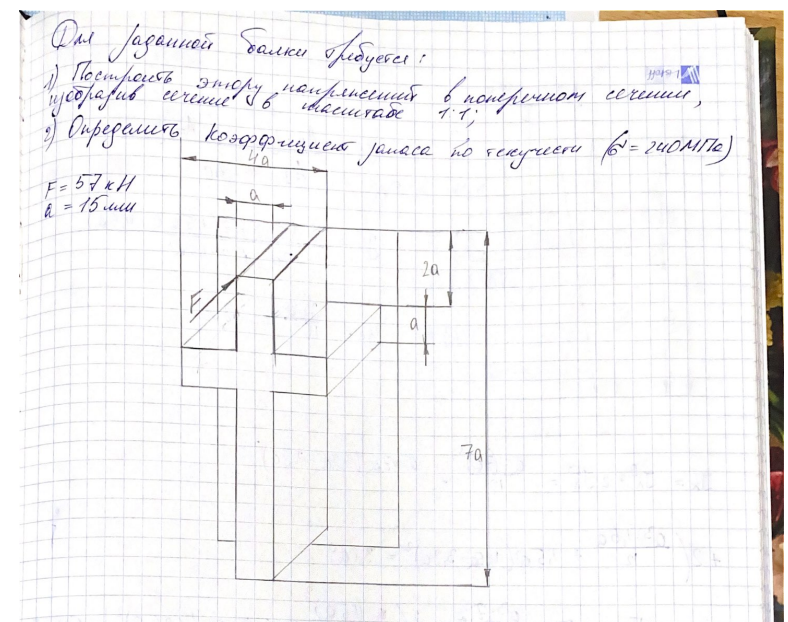 Для заданной балки требуется:
1) Построить эпюру напряжений в поперечном сечении,
изобразив сечение в масштабе 1:1;
2) Определить коэффициент запаса по текучести (σ = 240 МПа)
4a
F = 57 кН
a = 15 мм
a
2a
F
a
7a